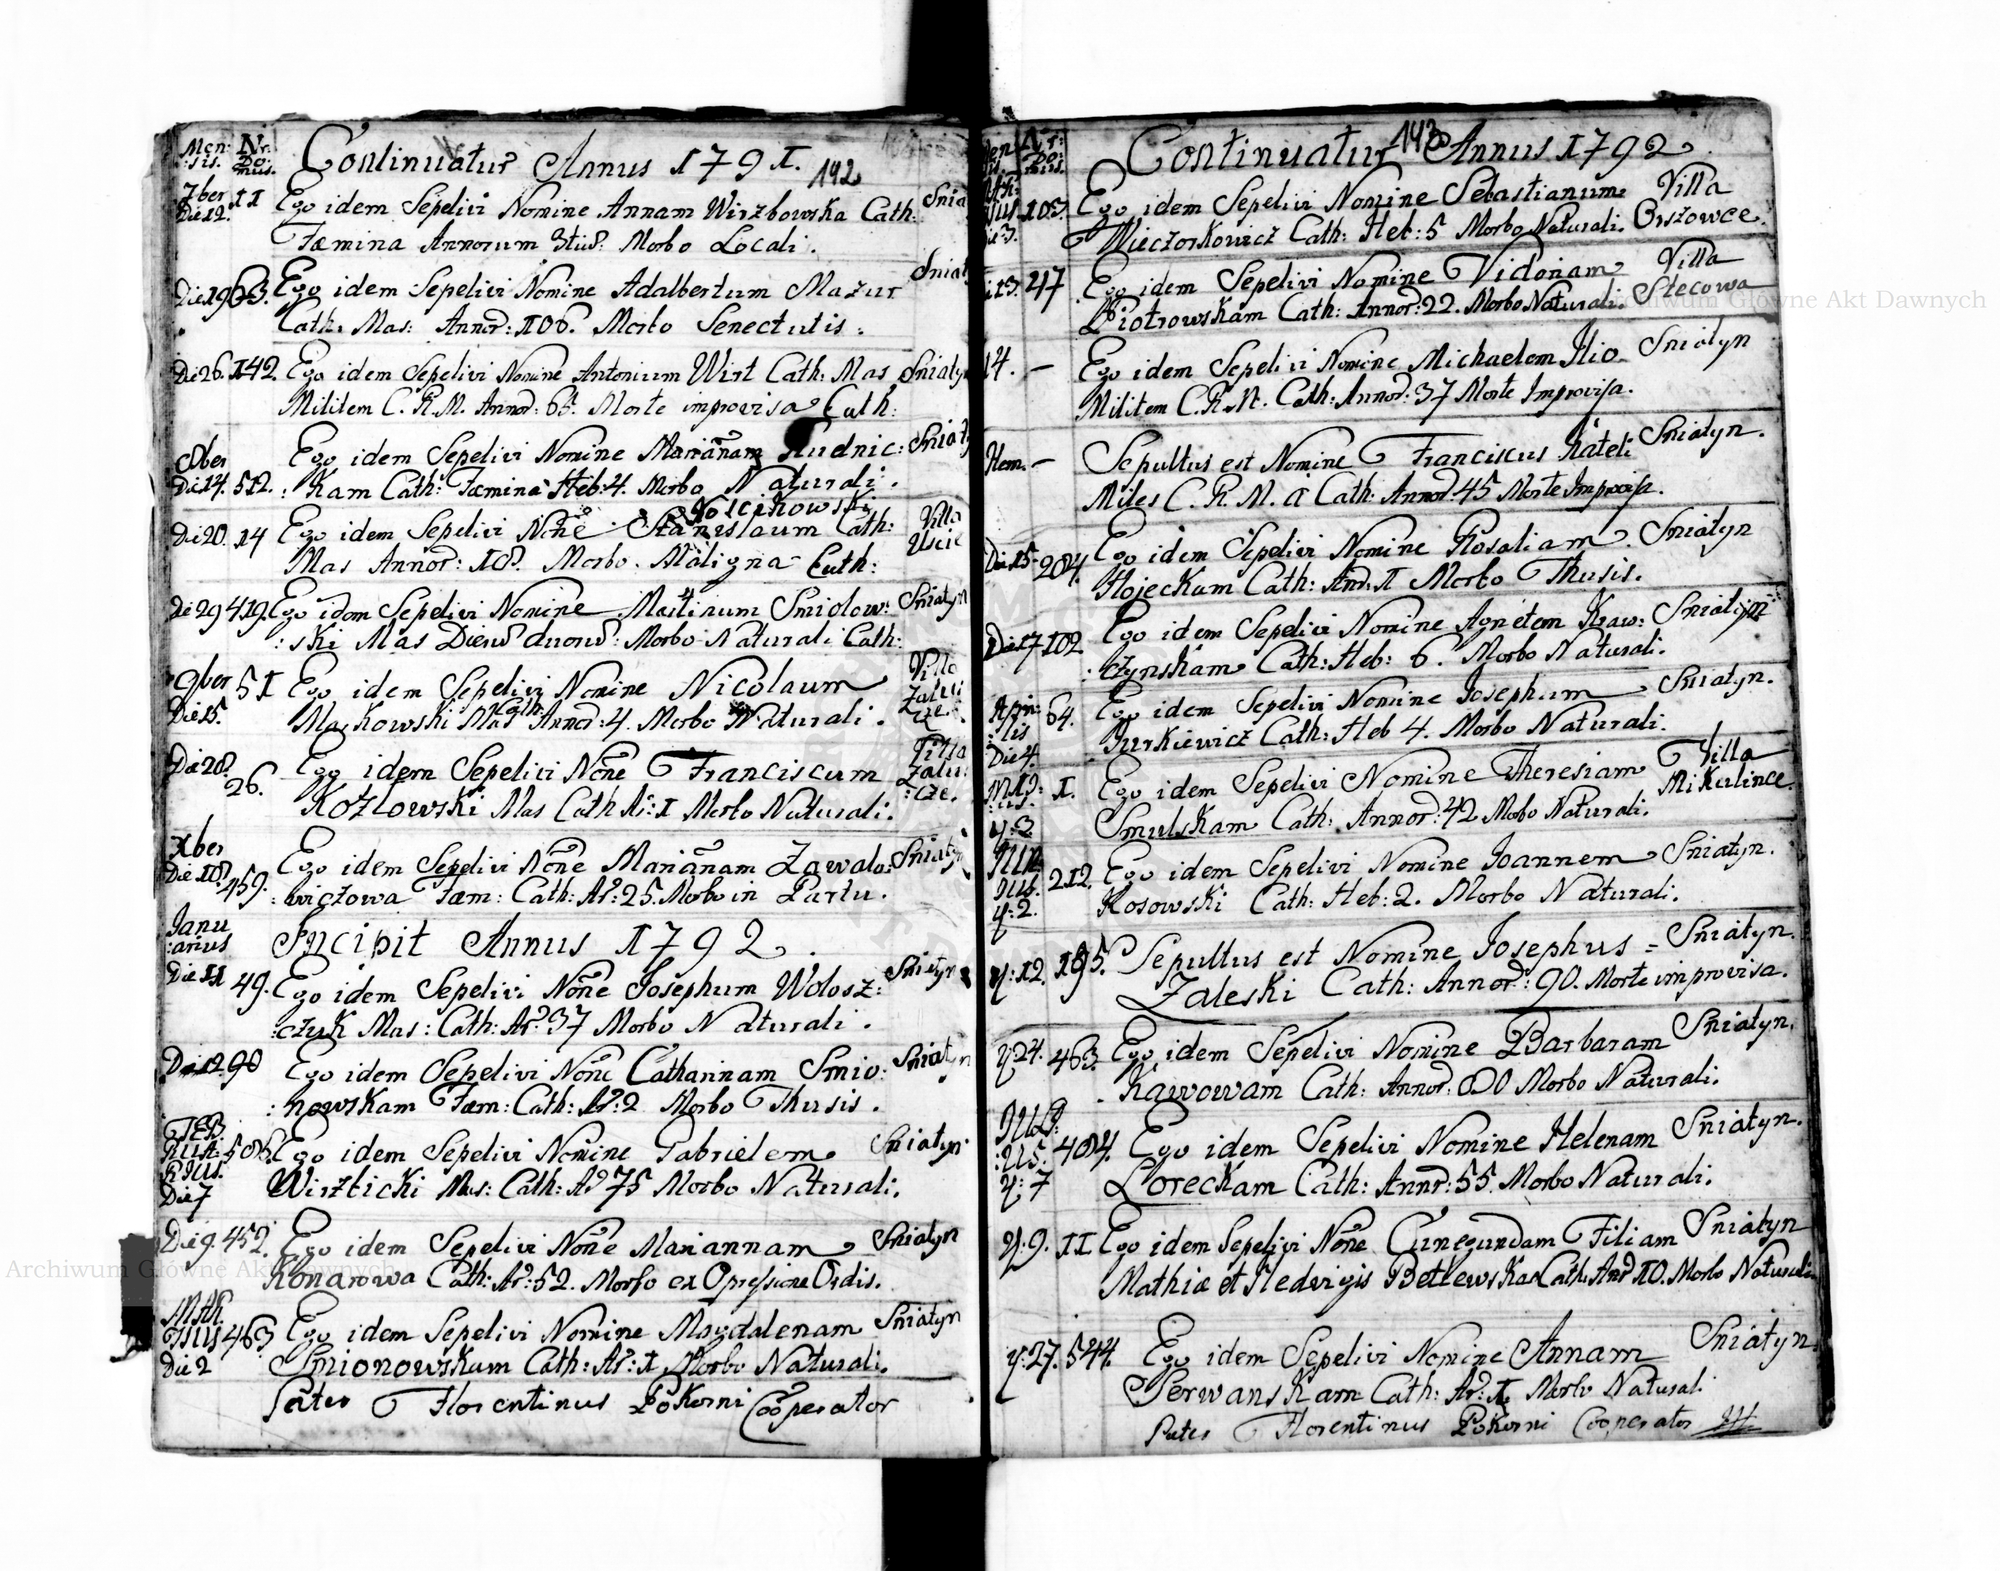 Men: Nr.
:sis. Do:
mus.
Continuatur Annus 1791. 142
7ber 11 Ego idem Sepelivi Nomine Annam Wirzbowska Cath: Snia
Die 12. Fæmina Annorum 3tiū: Morbo Locali.
Die 19 63. Ego idem Sepelivi Nomine Adalbertum Mazur Sniat
Cath: Mas: Annor: 106. Morbo Senectutis.
Die 26. 142. Ego idem Sepelivi Nomine Antonium Wirt Cath: Mas Sniatyn
Militem C. R. M. Annor: 65. Morte improvisa Cath:
8ber Ego idem Sepelivi Nomine Mariañam Rudnic: Sniaty
Die 14. 512. :Kam Cath: Fæmina Heb: 4. Morbo Naturali.
Koscikowski
Die 20. 14 Ego idem Sepelivi Noñe Stanislaum Cath: Villa
Mas Annor: 18. Morbo Maligna Cath:
Die 29 419. Ego idem Sepelivi Nomine Martinum Smiolow: Sniatyn
:ski Mas Dierū duorū: Morbo Naturali Cath:
9ber 51 Ego idem Sepelivi Nomine Nicolaum Villa
Die 15. Maskowski Mas Cath: Annor: 4. Morbo Naturali.
Die 28. Ego idem Sepelivi Noñe Franciscum Villa
26. Kozlowski Mas Cath Ar: 1 Morbo Naturali. Zalu:
:cze.
Xber Ego idem Sepelivi Noñe Mariañam Zawala: Sniatyn
Die 18. 459. :wiczowa Fæm: Cath: Ar: 25. Morbo in Partu.
Janu
:arius Incipit Annus 1792.
Die 11 49. Ego idem Sepelivi Noñe Josephum Wolosz: Sniatyn
:czuk Mas: Cath: Ar: 37 Morbo Naturali.
Die 12. 90 Ego idem Sepelivi Noñe Catharinnam Smio: Sniatyn
:nowskam Fæm: Cath: Ar: 2 Morbo Thusis.
FEB
RUA: 508. Ego idem Sepelivi Nomine Gabrielem Sniatyn
RIUS.
Die 7 Wirzbicki Mas: Cath: Ar 75 Morbo Naturali.
Die 9. 452. Ego idem Sepelivi Noñe Mariannam Sniatyn
Konarowa Cath: Ar: 52. Morbo ex Opressione Ordis.
Mar
Tius 463 Ego idem Sepelivi Nomine Magdalenam Sniatyn
Die 2 Smionowskam Cath: Ar: 1 Morbo Naturali.
Pater Florentinus Pokorni Cooperator
Nr:
Do:
mus.
Continuatur 143 Annus 1792.
103. Ego idem Sepelivi Nomine Sebastianum Villa
Die 3. Wieczorkowicz Cath: Heb: 5 Morbo Naturali. Orszowce.
13. 47 Ego idem Sepelivi Nomine Victoriam Villa
Piotrowskam Cath: Annor: 22. Morbo Naturali. Stecowa
14. – Ego idem Sepelivi Nomine Michaelem Ilio Sniatyn
Militem C. R. M. Cath: Annor: 37 Morte Improvisa.
Item. – Sepultus est Nomine Franciscus Kateli Sniatyn.
Miles C. R. M. a Cath: Annor: 45 Morte Improvisa.
Die 15 284. Ego idem Sepelivi Nomine Rosaliam Sniatyn
Hojeckam Cath: Anr: 1 Morbo Thusis.
Die 17 102 Ego idem Sepelivi Nomine Agnetem Kraw: Sniatyn
:czynskam Cath: Heb: 6. Morbo Naturali.
Apri: 64. Ego idem Sepelivi Nomine Josephum Sniatyn.
:lis
Die 4. Jurkiewicz Cath: Heb 4. Morbo Naturali.
MAJ: 1. Ego idem Sepelivi Nomine Theresiam Villa
:us. Mikulince.
y: 3 Smulskam Cath: Annor: 42 Morbo Naturali.
JUN
IUS. 212. Ego idem Sepelivi Nomine Joannem Sniatyn.
y: 2. Kosowski Cath: Heb: 2. Morbo Naturali.
y: 12. 195. Sepultus est Nomine Josephus = Sniatyn.
Zaleski Cath: Annor: 90. Morte improvisa.
y 24. 463. Ego idem Sepelivi Nomine Barbaram Sniatyn.
Kawowam Cath: Annor: 80 Morbo Naturali.
JULI:
:US. 484. Ego idem Sepelivi Nomine Helenam Sniatyn.
y: 7 Loreckam Cath: Annr: 55. Morbo Naturali.
y: 9. 11 Ego idem Sepelivi Noñe Cunegundam Filiam Sniatyn
Mathiæ et Hedvigis Betlewska Cath: Anr 10. Morbo Naturali
y: 27. 544. Ego idem Sepelivi Nomine Annam Sniatyn.
Serwanskam Cath: Ar: 1. Morbo Naturali
Pater Florentinus Pokorni Cooperator
Archiwum Główne Akt Dawnych
Archiwum Główne Akt Dawnych